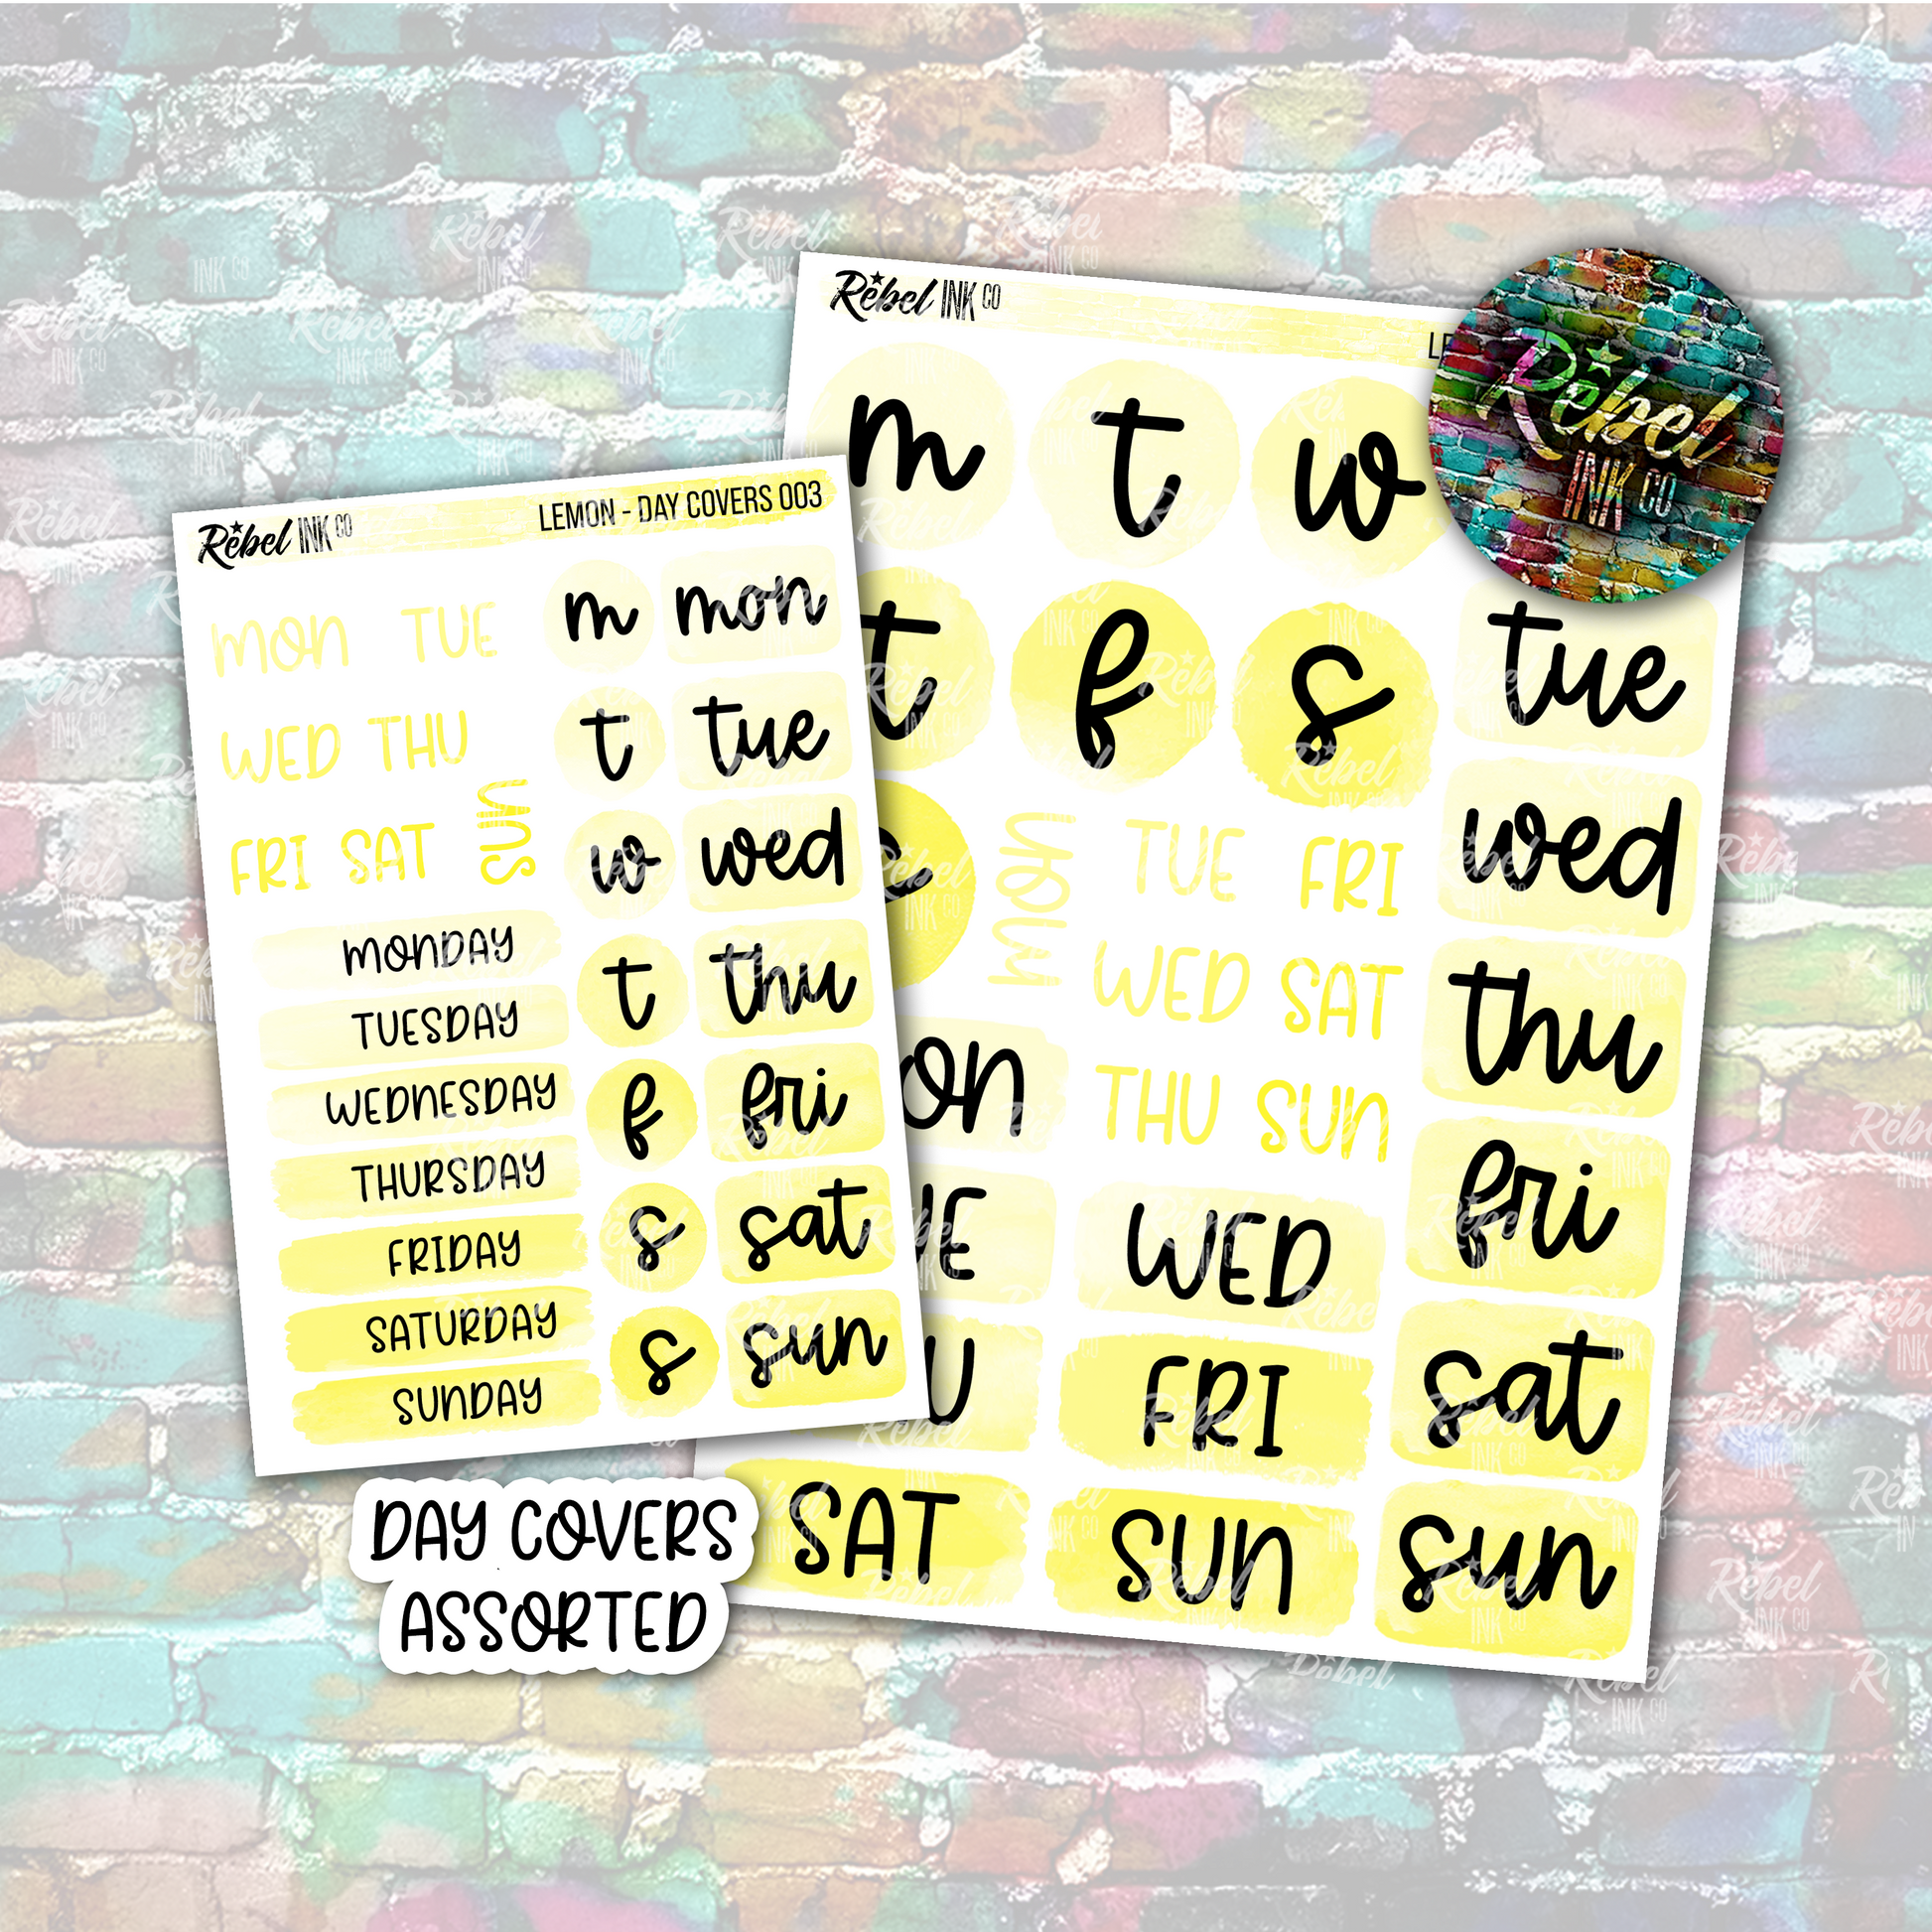 Rebel INK CO
LEMON - DAY COVERS 003
MON TUE
WED THU
FRI SAT SUN
MONDAY
TUESDAY
WEDNESDAY
THURSDAY
FRIDAY
SATURDAY
SUNDAY
m mon
t tue
w wed
t thu
f fri
s sat
s sun
Rebel INK CO
m t w
t f s
tue
wed
thu
fri
sat
sun
MON TUE FRI
WED SAT
THU SUN
WED
FRI
SAT SUN
Rebel
INK CO
DAY COVERS
ASSORTED